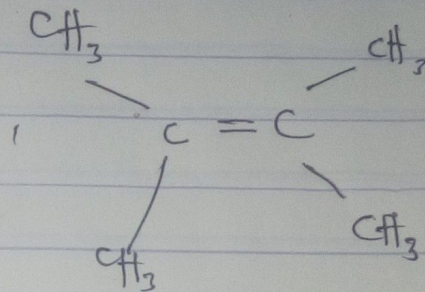 CH3
CH3
C = C
CH3
CH3